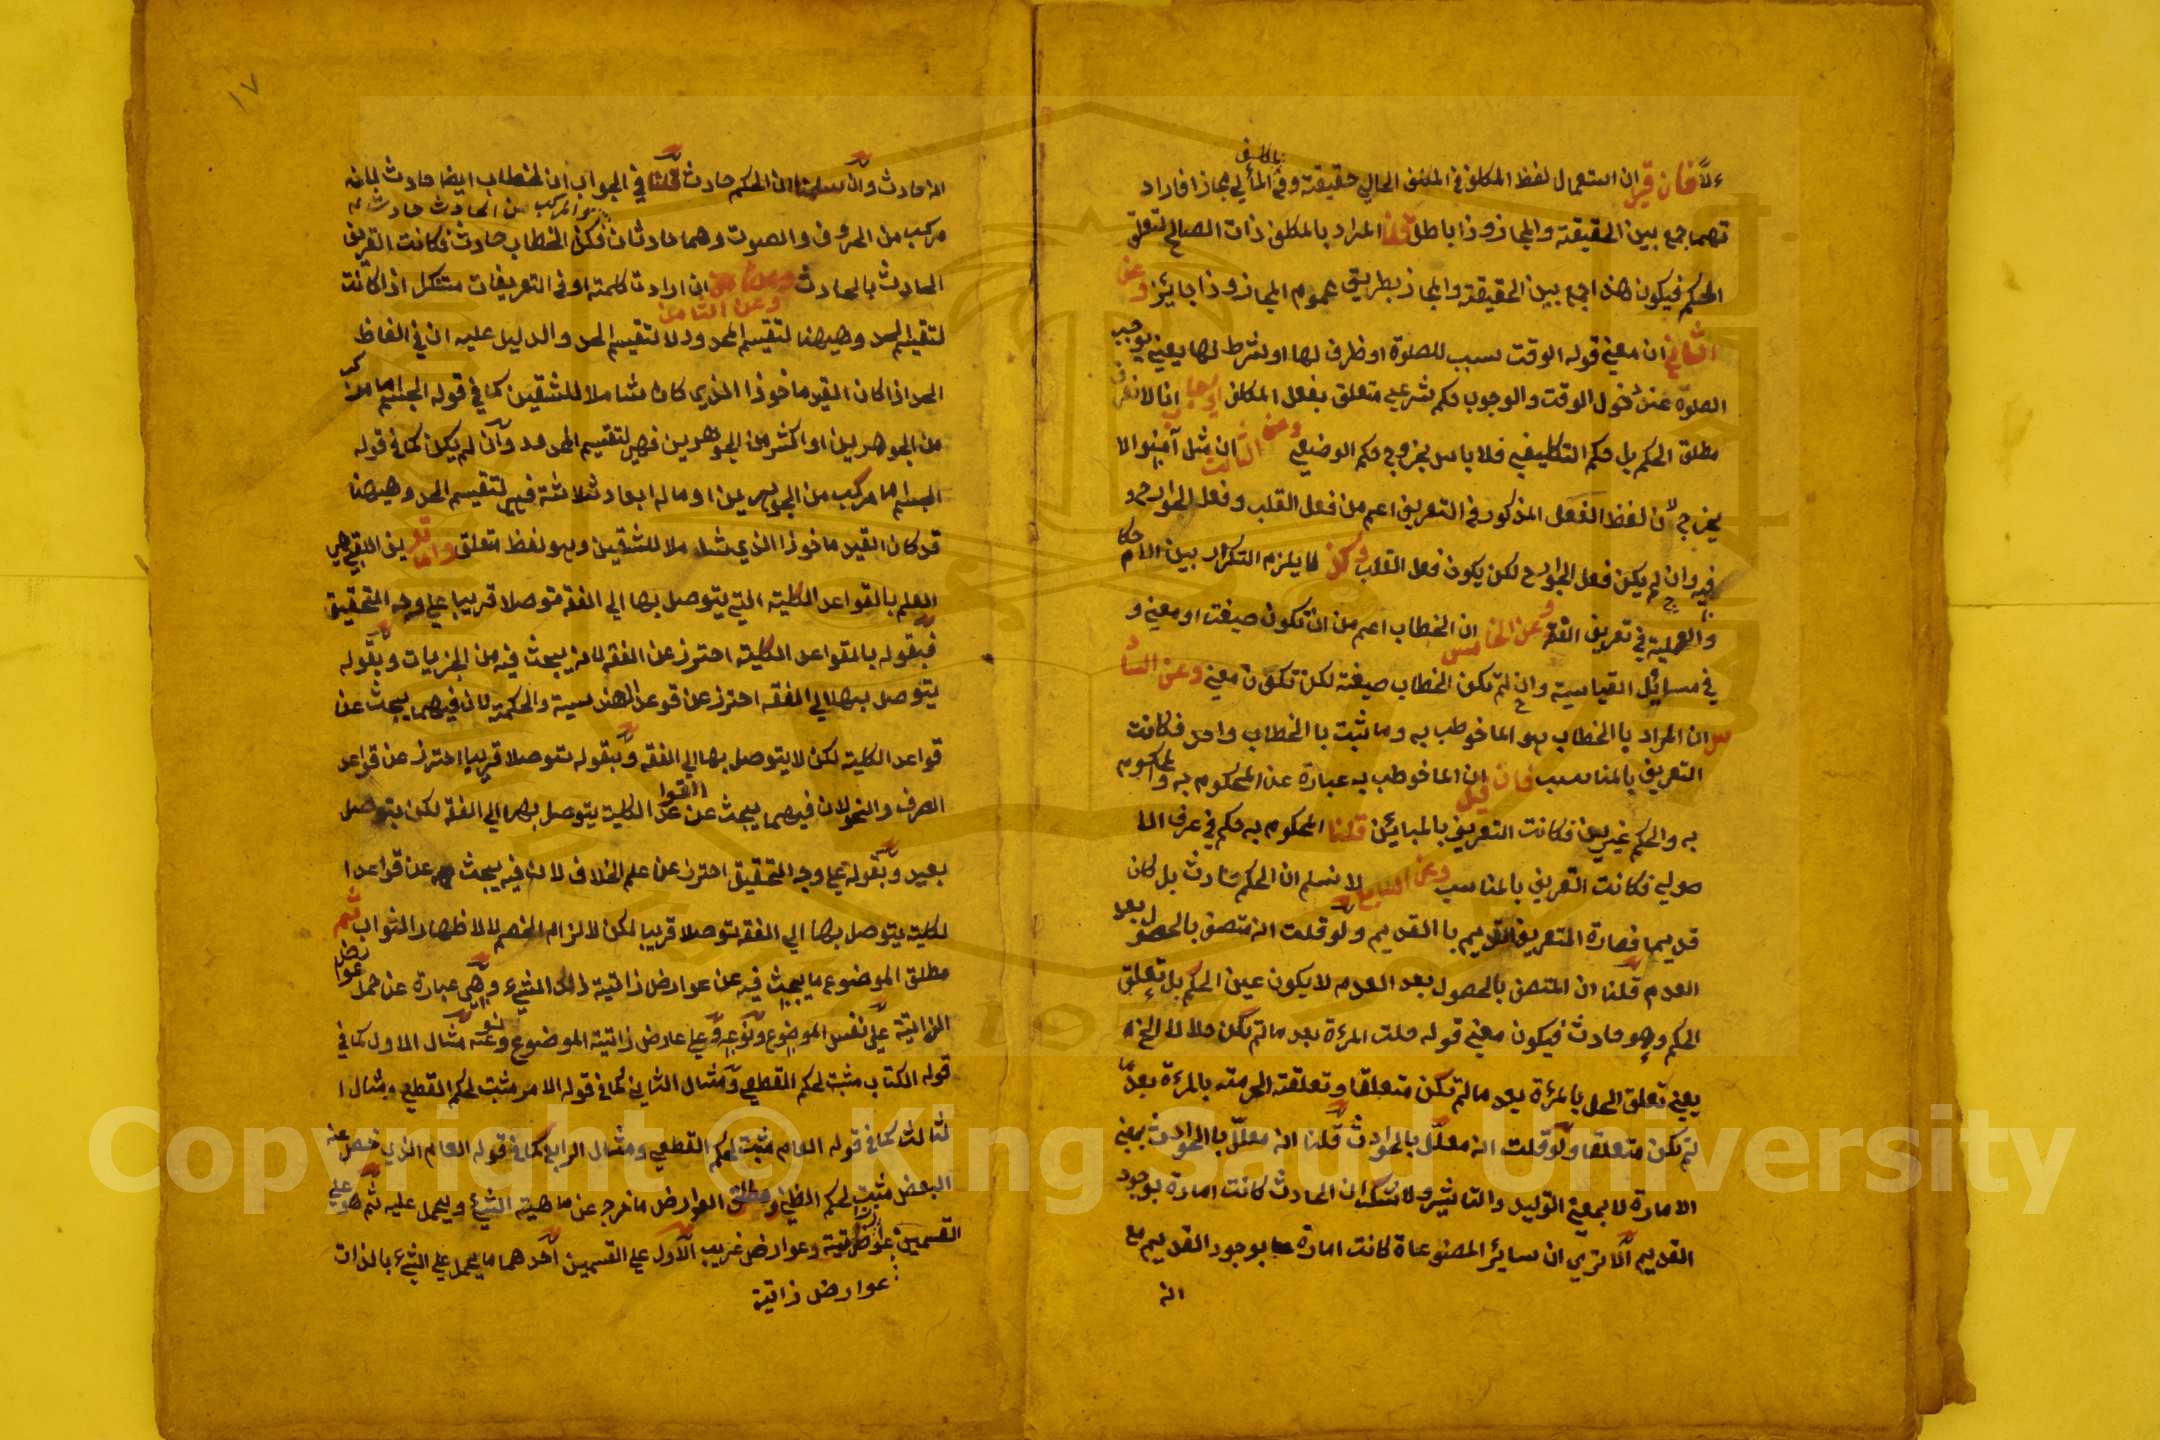 ءلاً فان قيل ان استعمال لفظ المكلف في المكلف الحالي حقيقة وفي المألي مجازا فاراد
تهما جمع بين الحقيقة والمجاز وذا باطل قلنا المراد بالمكلف ذات المصالح لتعلق
الحكم فيكون هذا جمع بين الحقيقة والمجاز بطريق عموم المجاز وذا جايز وعن
الثاني ان معنى قوله الوقت سبب للصلوة او ظرف لها او شرط لها يعني يوجب
الصلوة عند دخول الوقت والوجوب حكم شرعي متعلق بفعل المكلف انا لا نعرف
مطلق الحكم بل حكم التكليفي فلا باس بخروج حكم الوضعي وعن الثالث ان مثل آمنوا لا
يخرج لان لفظ الفعل المذكور في التعريف اعم من فعل القلب وفعل الجوارح و
فيه وان لم يكن فعل الجوارح لكن يكون فعل القلب لا يلزم التكرار بين الاحكام
والعملية في تعريف الفقه وعن الخامس ان الخطاب اعم من ان تكون صيغة او معنى و
في مسائل القياسية وان لم تكن الخطاب صيغة لكن تكون معنى وعن السا
دس ان المراد با الخطاب هو الما خوطب به وما ثبت با الخطاب واحد فكانت
التعريف بالمناسب فان قيل ان الما خوطب به عبارة عن المحكوم به والمحكوم
به والحكم غيرين فكانت التعريف بالمباين قلنا المحكوم به حكم في عرف الا
صولي فكانت التعريف بالمناسب وعن السابع لا نسلم ان الحكم حادث بل كان
قديما فصارة التعريف القديم با القديم ولو قلت انه متصف بالحصول بعد
العدم قلنا ان المتصف بالحصول بعد العدم لا يكون عين الحكم بل تعلق
الحكم وهو حادث فيكون معنى قوله حلت المرءة بعد مالم تكن حلالا الخ
يعني تعلق الحل بالمرءة بعد مالم تكن متعلقا وتعلقة الحرمته بالمرءة بعد ما
لم تكن متعلقا ولو قلت انه معلل بالحوادث قلنا انه معلل با الحوادث بمعنى
الامارة لا بمعنى التوليد والتاثير ولا شك ان الحادث كانت امارة بوجود
القديم الا ترى ان ساير المصنوعاة كانت امارة بوجود القديم مع
انه
١٧
انه حادث وان سلمنا ان الحكم حادث قلنا في الجواب ان الخطاب ايضا حادث لانه
والمركب من الحادث حادث
مركب من الحروف والصوت وهما حادثان فكان الخطاب حادث فكانت التعريف
الحادث بالحادث وعن الثامن ان ايراد كلمة او في التعريفات متنكر اذا كانت
لتقسيم الحد وهيهنا لتقسيم المحدود لا لتقسيم الحد والدليل عليه ان في الفاظ
الحد اذا كان القيد ماخوذا الذي كان شاملا للشقين كما في قوله الجسم ما مركب
من الجوهرين او اكثر من الجوهرين فهي لتقسيم المحدود وان لم يكن كما في قوله
الجسم اما مركب من الجوهرين او ماله ابعاد ثلاثة فهي لتقسيم الحد وهيهنا
قد كان القيد ماخوذا الذي شاملا للشقين وهو لفظ متعلق واما تعريف اللقبي هي
العلم بالقواعد الكلية التي يتوصل بها الي الفقه توصلا قريبا علي وجه التحقيق
فبقوله بالقواعد الكلية احترز عن الفقه لانه يبحث فيه من الجزيات وبقوله
يتوصل بها الي الفقه احترز عن قوعد الهندسية والحكمة لان فيهما يبحث عن
قواعد الكلية لكن لا يتوصل بها الي الفقه وبقوله توصلا قريبا احترز عن قواعد
الصرف والنحو لان فيهما يبحث عن القواعد الكلية يتوصل بها الي الفقه لكن يتوصل
بعيد وبقوله علي وجه التحقيق احترز عن علم الخلاف لان فيه يبحث عن قواعد ا
لكلية يتوصل بها الي الفقه توصلا قريبا لكن لالزام الخصم لا لاظهار الثواب ثم
مطلق الموضوع ما يبحث فيه عن عوارض ذاتية ذلك الشيء وهي عبارة عن حمل عوارض
الذاتية علي نفس الموضوع ونوعه وعلي عارض ذاتية الموضوع ونوعه مثال الاول كما في
قوله الكتاب مثبت لحكم القطعي ومثال الثاني كما في قوله الامر مثبت لحكم القطعي ومثال ا
لثالث كما في قوله العام مثبت لحكم القطعي ومثال الرابع كما في قوله العام الذي خص عنه
البعض مثبت لحكم الظني ومطلق العوارض ما خرج عن ماهية الشيء ويحمل عليه ثم هو علي
القسمين وعوارض غريب الاول علي القسمين احدهما ما يحمل علي الشيء بالذات
عوارض ذاتية
Copyright © King Saud University